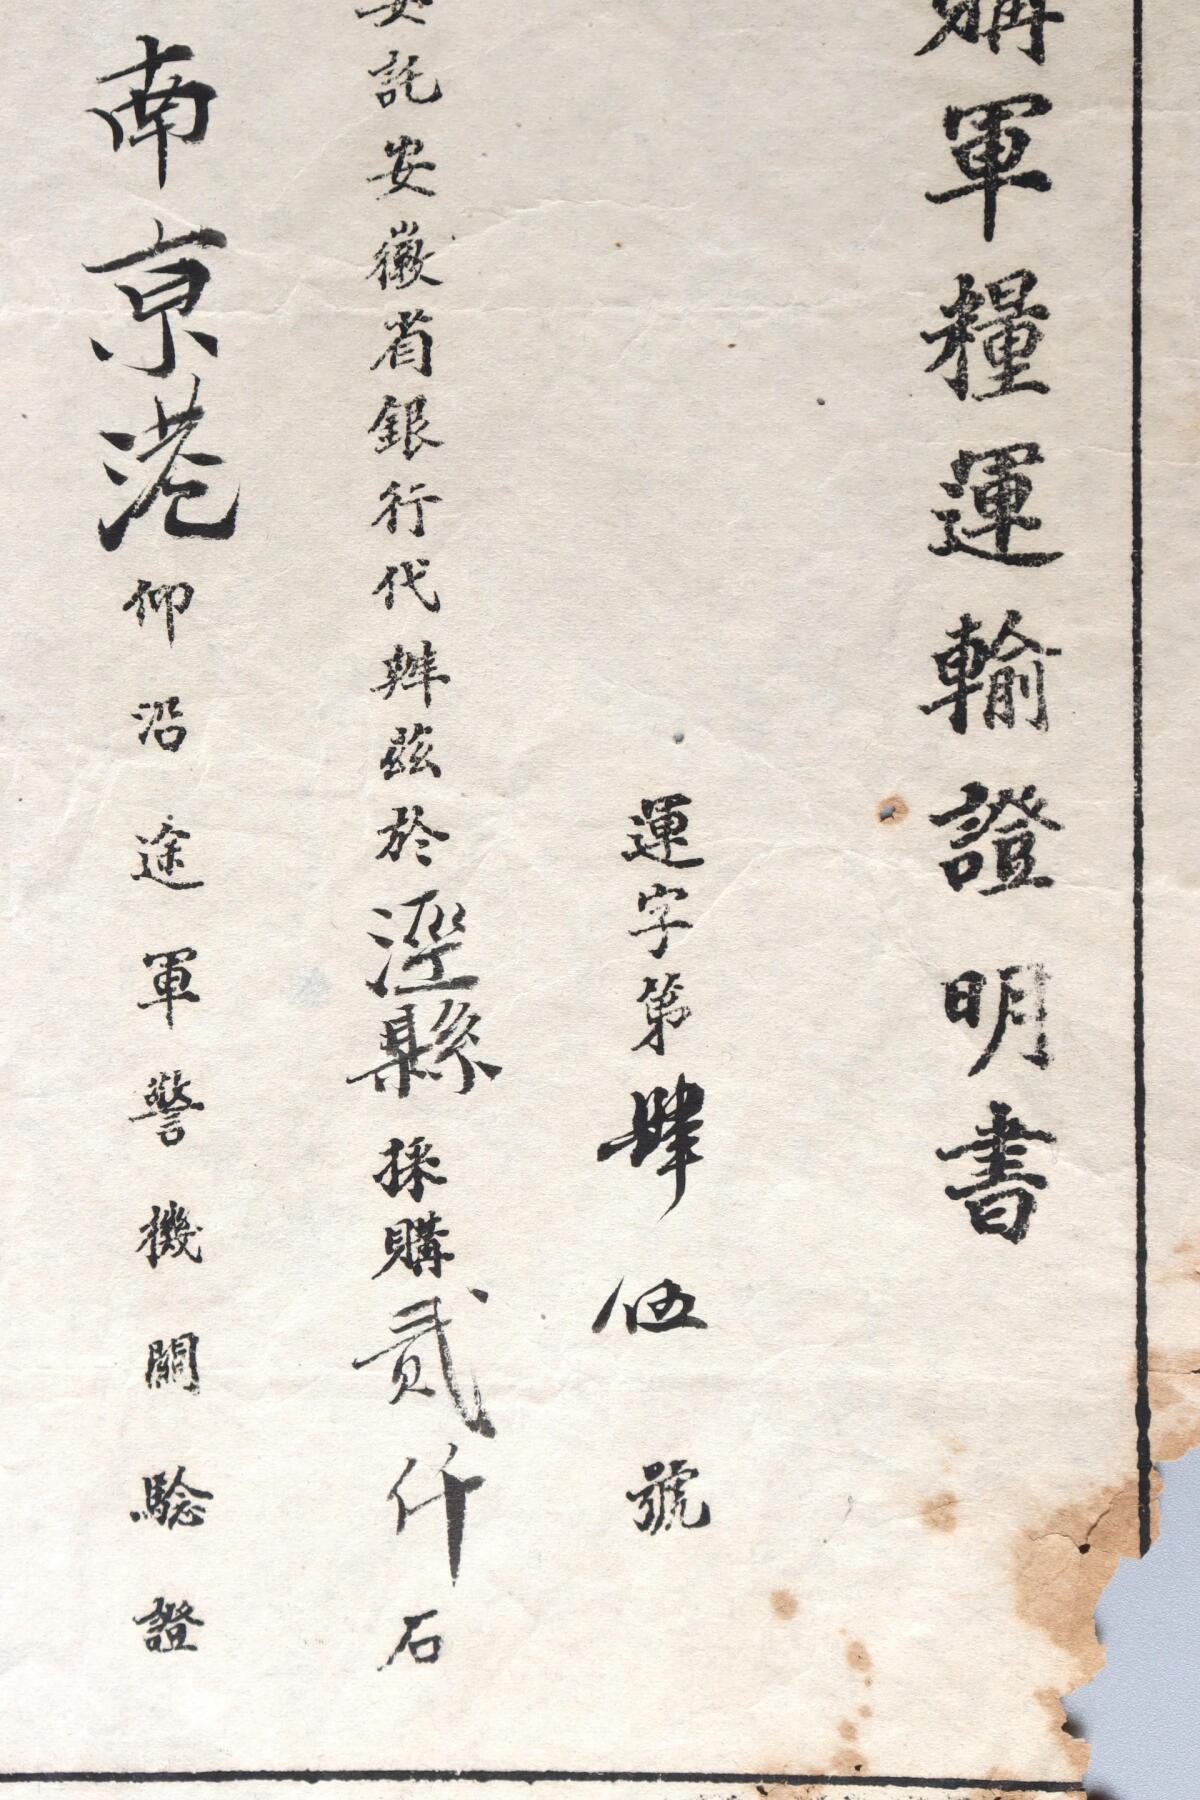 購軍糧運輸證明書
運字第肆伍號
委託安徽省銀行代辦茲於涇縣採購貳仟石
南京港仰沿途軍警機關驗證